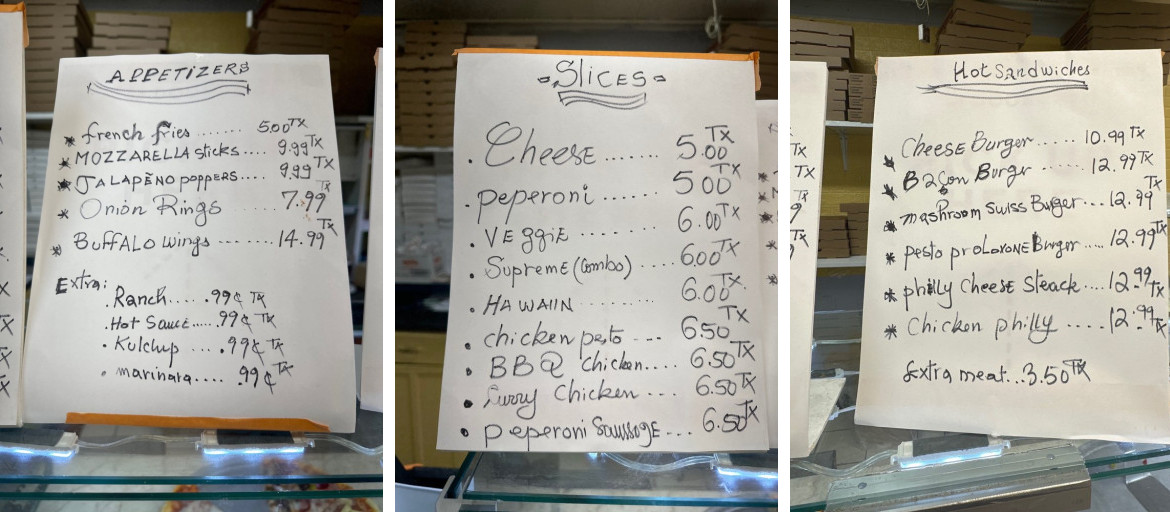 APPETIZERS
* french fries ....... 5.00 TX
* MOZZARELLA sticks .... 9.99 TX
* JALAPEÑO poppers .... 9.99 TX
* Onion Rings ..... 7.99 TX
* BUFFALO wings ....... 14.99 TX
Extra:
. Ranch ..... .99¢ TX
. Hot Sauce ..... .99¢ TX
. Kutchup .... .99¢ TX
. marinara .... .99¢ TX
- SLICES -
. Cheese ...... 5.00 TX
. peperoni ...... 5.00 TX
. VEggiE ....... 6.00 TX
. SupremE (Combo) .... 6.00 TX
. HAWAIN ........ 6.00 TX.
. chicken pesto --- 6.50 TX
. BBQ chicken .... 6.50 TX
. Curry Chicken ... 6.50 TX
. peperoni SaussagE ... 6.50 TX
Hot Sandwiches
* CheesE Burger ..... 10.99 TX
* Bacon Burgr ..... 12.99 TX
* mashroom Swiss Burger ... 12.99 TX
* pesto proLovoNE Burger .... 12.99 TX
* philly CheesE Steack .... 12.99 TX
* Chicken philly .... 12.99 TX
Extra meat ... 3.50 TX